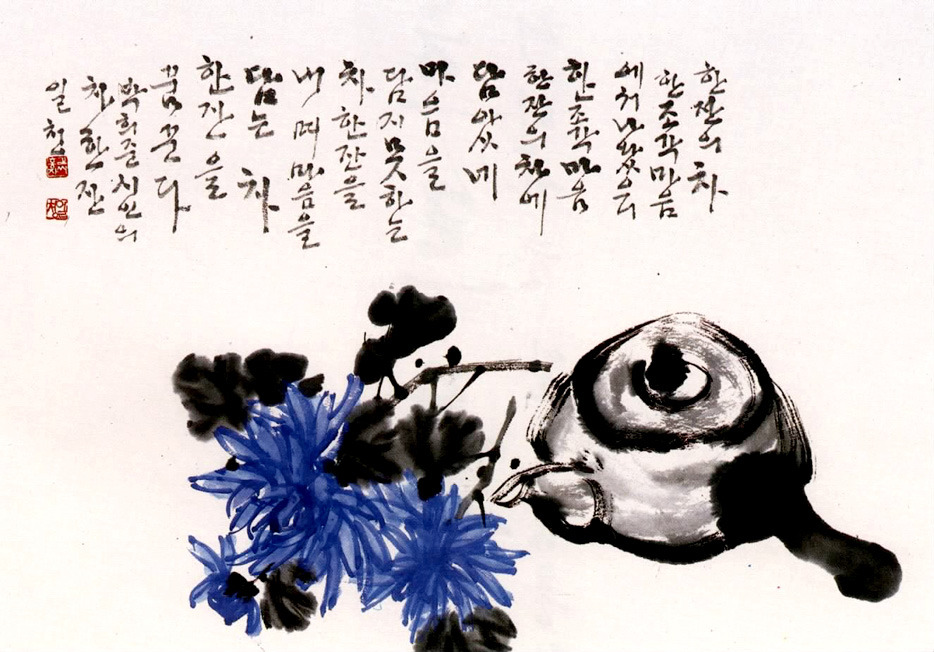 한잔의 차
한조각 마음
한조각 마음
한잔의 차에
담았네
마음을
담지못하는
차 한잔을
내며 마음을
담는 차
한잔을
꿈꾼다
박희준시인의
차한잔